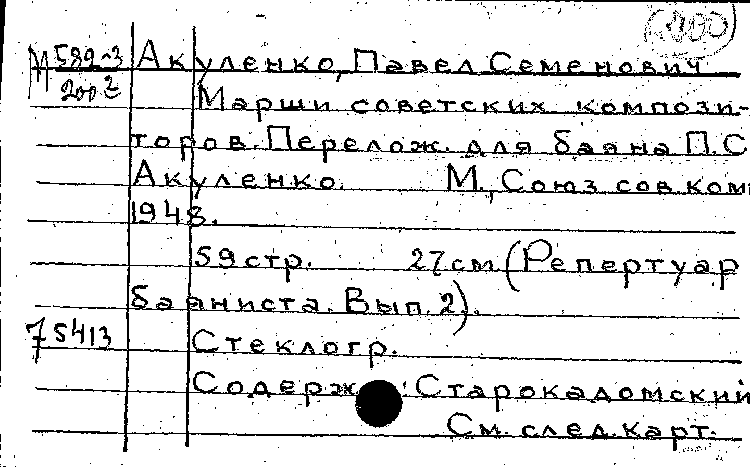 М 589-3 Акуленко, Павел Семенович
2002 Марши советских компози-
торов. Перелож. для баяна П.С
Акуленко. М., Союз сов.комп
1948.
59 стр. 27 см (Репертуар
баяниста. Вып. 2).
75413 Стеклогр.
Содерж.: Старокадомский
См. след. карт.